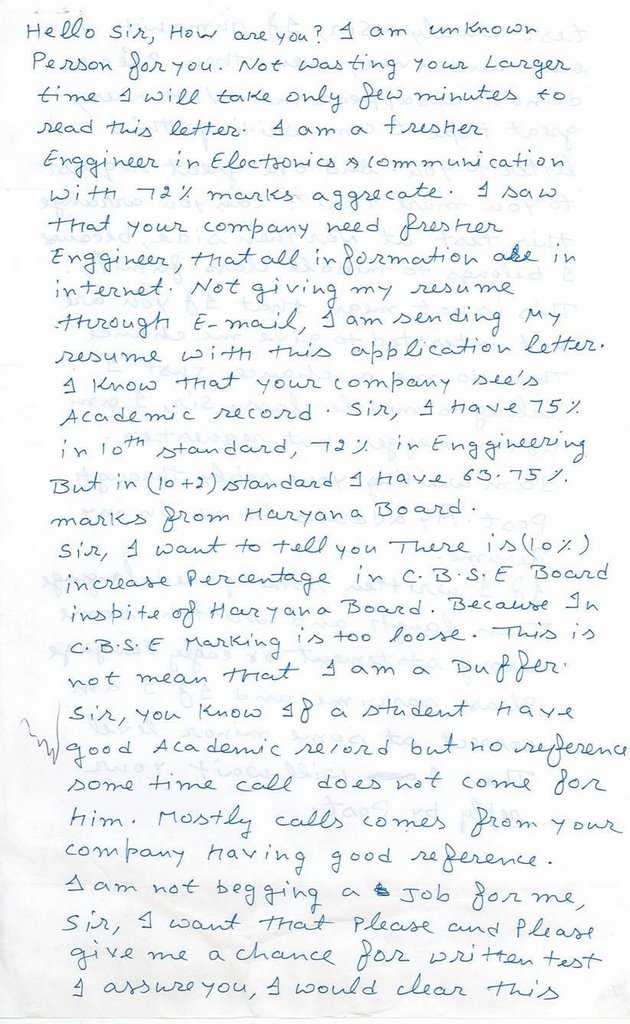 Hello Sir, How are you? I am unknown
Person for you. Not wasting your Larger
time I will take only few minutes to
read this letter. I am a fresher
Enggineer in Electronics & communication
with 72% marks aggrecate. I saw
that your company need fresher
Enggineer, that all information are in
internet. Not giving my resume
through E-mail, I am sending My
resume with this application letter.
I know that your company see's
Academic record. Sir, I have 75%
in 10th standard, 72% in Enggineering
But in (10+2) standard I have 63.75%
marks from Haryana Board.
Sir, I want to tell you There is (10%)
increase Percentage in C.B.S.E Board
inspite of Haryana Board. Because In
C.B.S.E Marking is too loose. This is
not mean that I am a Duffer.
Sir, you know If a student have
good Academic record but no reference
some time call does not come for
Him. Mostly calls comes from your
company having good reference.
I am not begging a Job for me,
Sir, I want that Please and Please
give me a chance for written test
I assure you, I would clear this